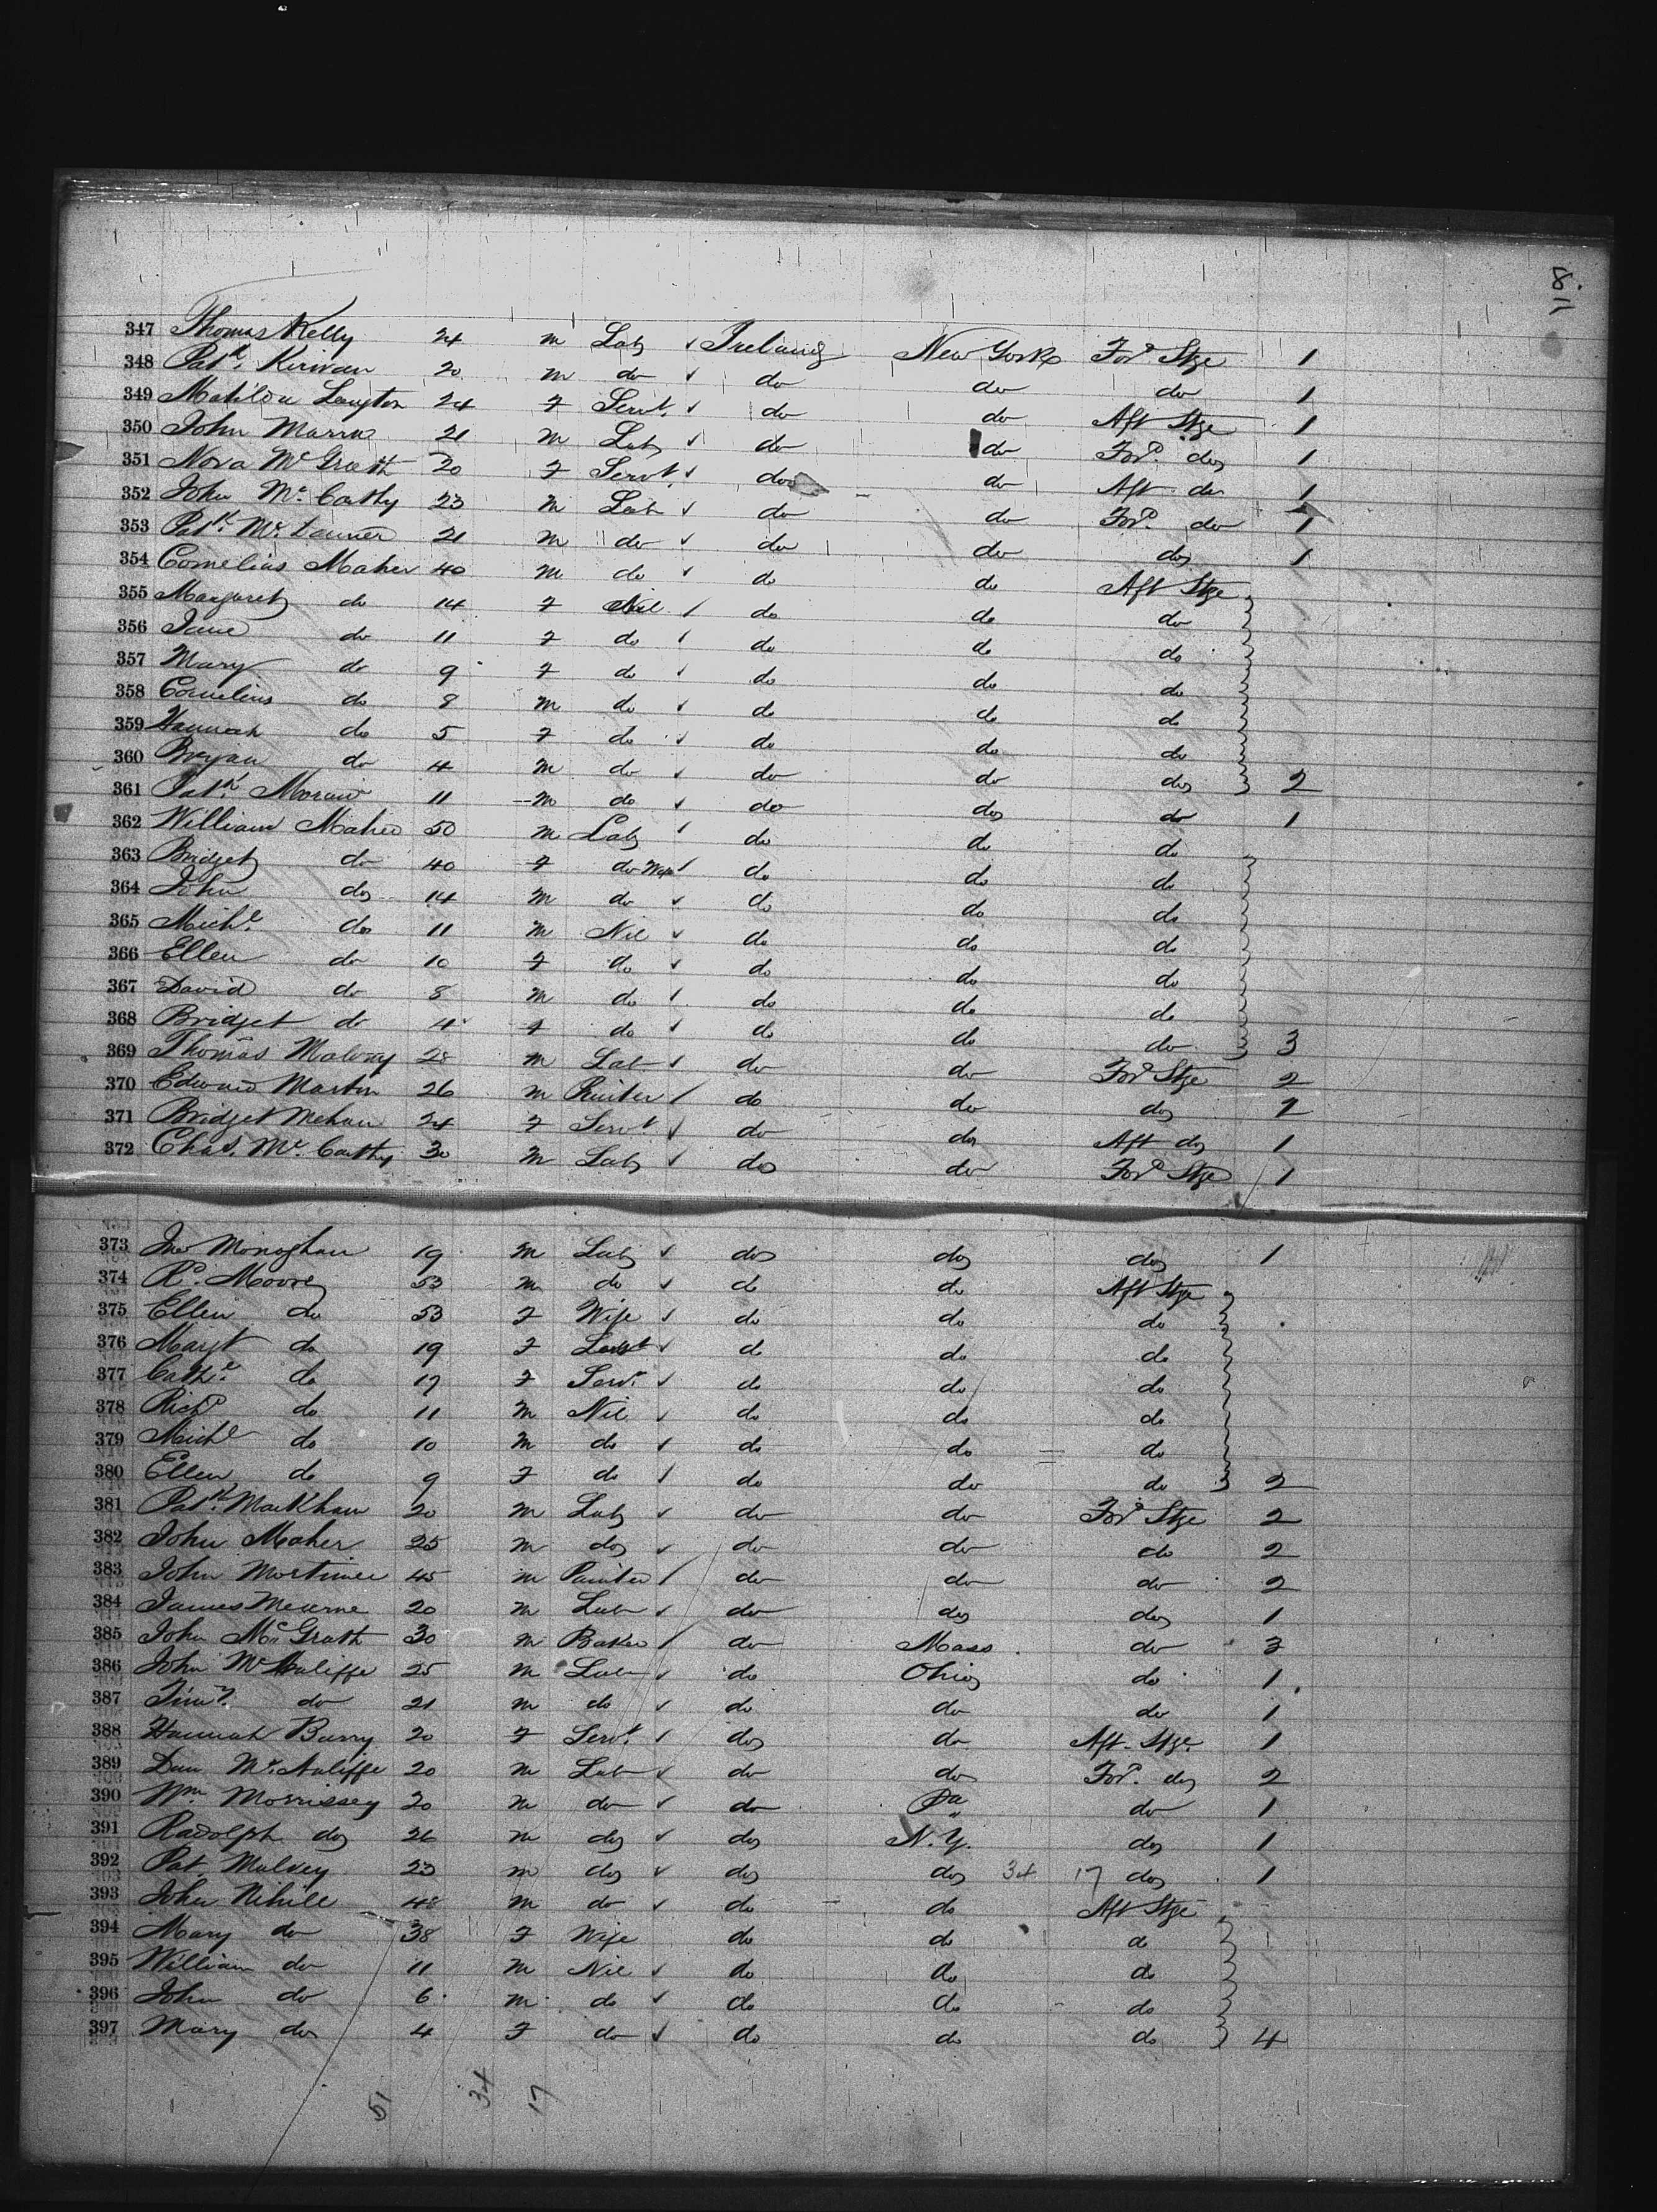 81
347 Thomas Kelly 24 m Lab ✓ Ireland New York Ford Stge 1
348 Patk. Kirivan 20 m do ✓ do do do 1
349 Matilda Langton 24 F Servt. ✓ do do Aft Stge 1
350 John 21 m Lab ✓ do do Ford. do 1
351 Nora McGrath 20 F Servt. ✓ do do Aft do 1
352 John McCarthy 23 m Lab ✓ do do Ford. do 1
353 Patk. 21 m do ✓ do do do 1
354 Cornelius Maher 40 m do ✓ do do Aft Stge
355 Margaret do 14 F Nil ✓ do do do
356 Jane do 11 F do ✓ do do do
357 Mary do 9 F do ✓ do do do
358 Cornelius do 8 m do ✓ do do do
359 Hannah do 5 F do ✓ do do do
360 Bryan do 4 m do ✓ do do do 2
361 Patk. 11 m do ✓ do do do 1
362 William Maher 50 m Lab ✓ do do do
363 Bridget do 40 F do Wife ✓ do do do
364 John do 14 m do ✓ do do do
365 Michl. do 11 m Nil ✓ do do do
366 Ellen do 10 F do ✓ do do do
367 David do 8 m do ✓ do do do
368 Bridget do 4 F do ✓ do do do 3
369 Thomas 28 m Lab ✓ do do Ford Stge 2
370 Edward Martin 26 m ✓ do do do 2
371 Bridget Mehan 24 F Servt ✓ do do Aft do 1
372 Chas. McCarthy 30 m Lab ✓ do do Ford Stge 1
373 Jno Monoghan 19 m Lab ✓ do do do 1
374 Rd. Moore 53 m do ✓ do do Aft Stge
375 Ellen do 53 F Wife ✓ do do do
376 Margt do 19 F ✓ do do do
377 Cathe. do 17 F Servt. ✓ do do do
378 Richd do 11 m Nil ✓ do do do
379 Michl do 10 m do ✓ do do do
380 Ellen do 9 F do ✓ do do do 2
381 Patk. Markham 20 m Lab ✓ do do Ford Stge 2
382 John Maher 25 m do ✓ do do do 2
383 John Mortimer 45 m Painter ✓ do do do 2
384 James Mearne 20 m Lab ✓ do do do 1
385 John McGrath 30 m Baker ✓ do Mass. do 3
386 John McAuliffe 25 m Lab ✓ do Ohio do 1
387 Timy. do 21 m do ✓ do do do 1
388 Hannah Barry 20 F Servt. ✓ do do Aft. Stge 1
389 Dan McAuliffe 20 m Lab ✓ do do Ford. do 2
390 Wm Morrissey 20 m do ✓ do Pa do 1
391 Radolph do 26 m do ✓ do N.Y. do 1
392 Pat. Mulvey 23 m do ✓ do do 34 17 do 1
393 John Nihill 48 m do ✓ do do Aft Stge
394 Mary do 38 F Wife do do do
395 William do 11 m Nil ✓ do do do
396 John do 6 m do ✓ do do do
397 Mary do 4 F do ✓ do do do 4
51 34 17